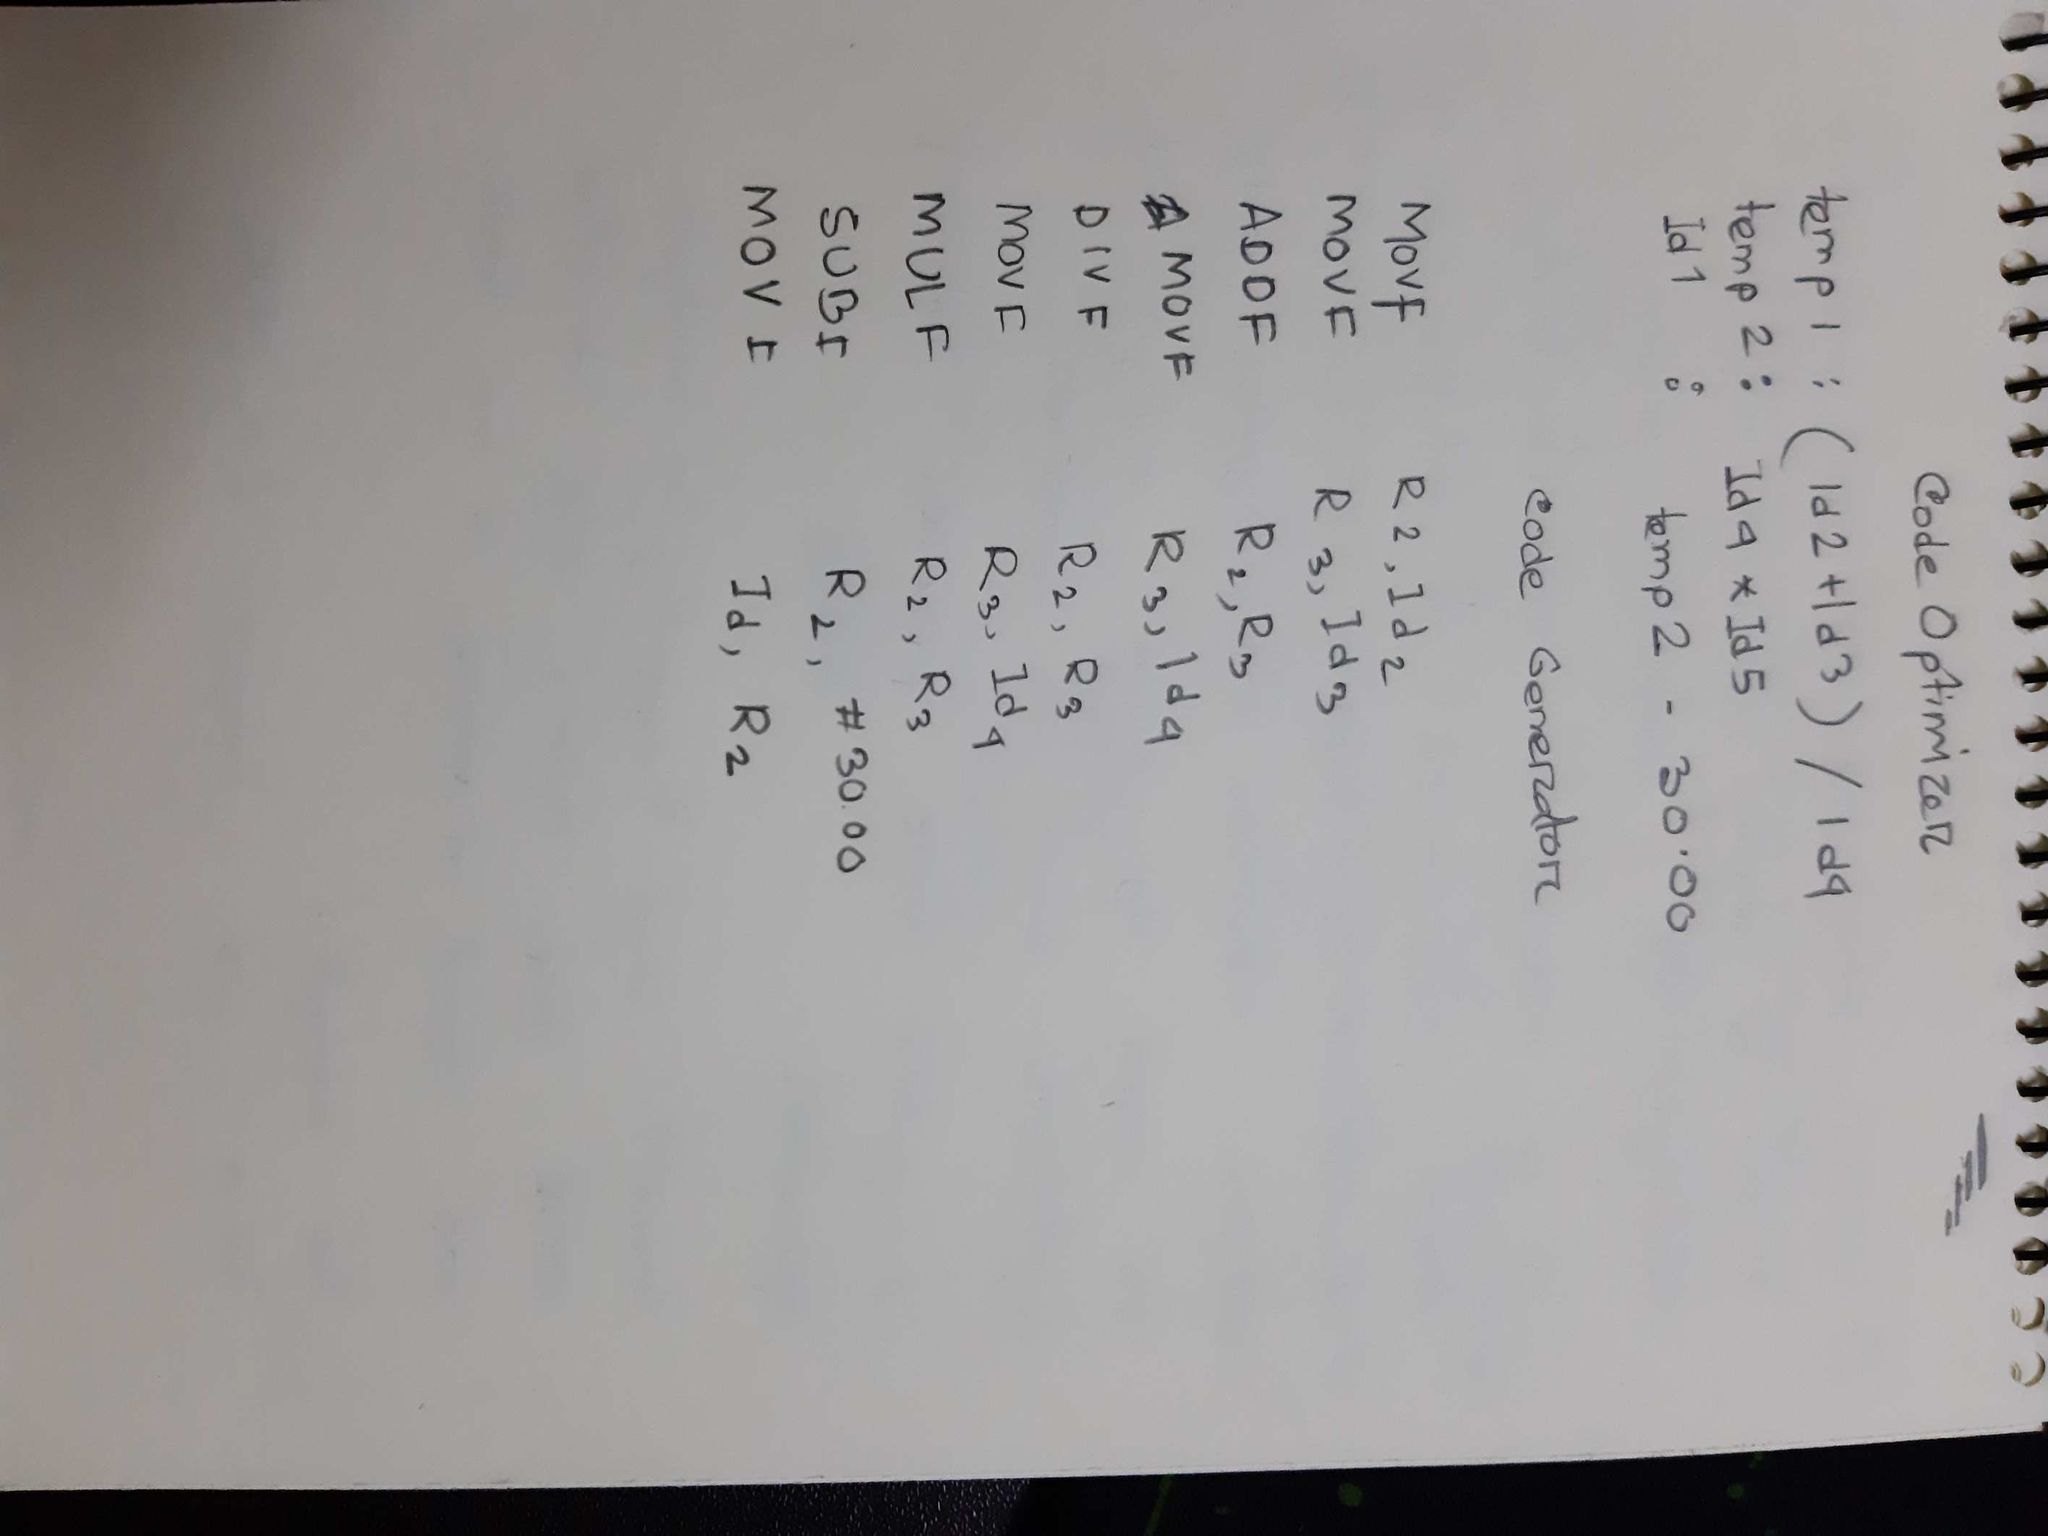 Code Optimizer
temp 1 : (Id2+Id3) / Id4
temp 2 : Id4 * Id5
Id1 : temp2 - 30.00
Code Generator
MOVF R2, Id2
MOVF R3, Id3
ADDF R2, R3
MOVF R3, Id4
DIVF R2, R3
MOVF R3, Id4
MULF R2, R3
SUBF R2, #30.00
MOVF Id, R2